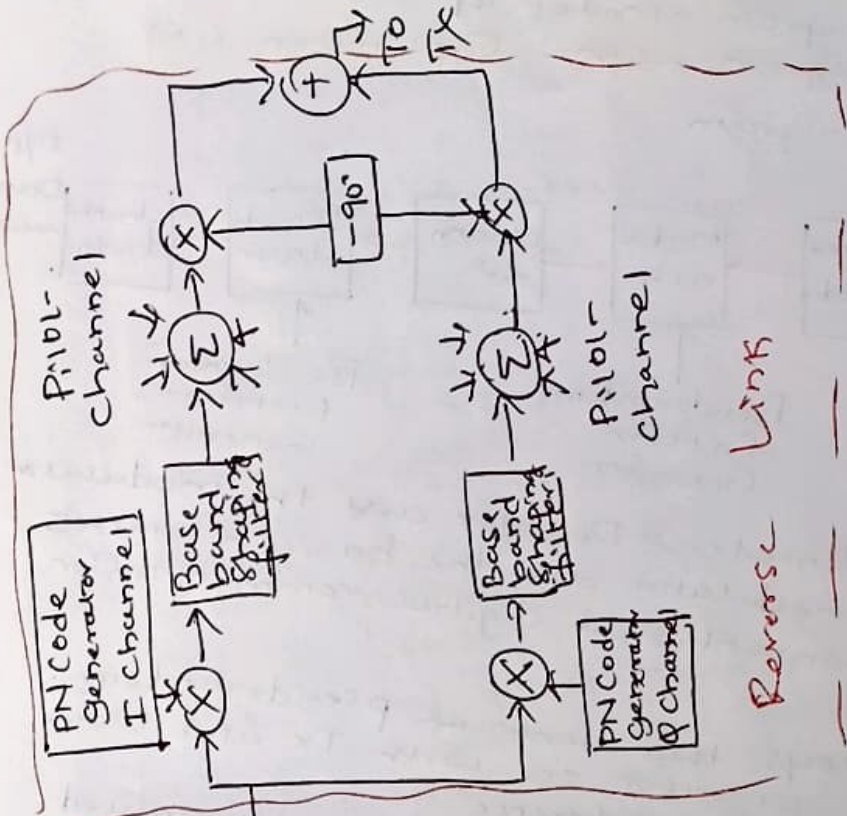 PN Code
generator
I Channel
X
Base
band
shaping
filter
Pilot
channel
Σ
X
-90°
+
To
TX
X
PN Code
generator
Q Channel
Base
band
shaping
filter
Σ
Pilot
channel
X
Reverse Link